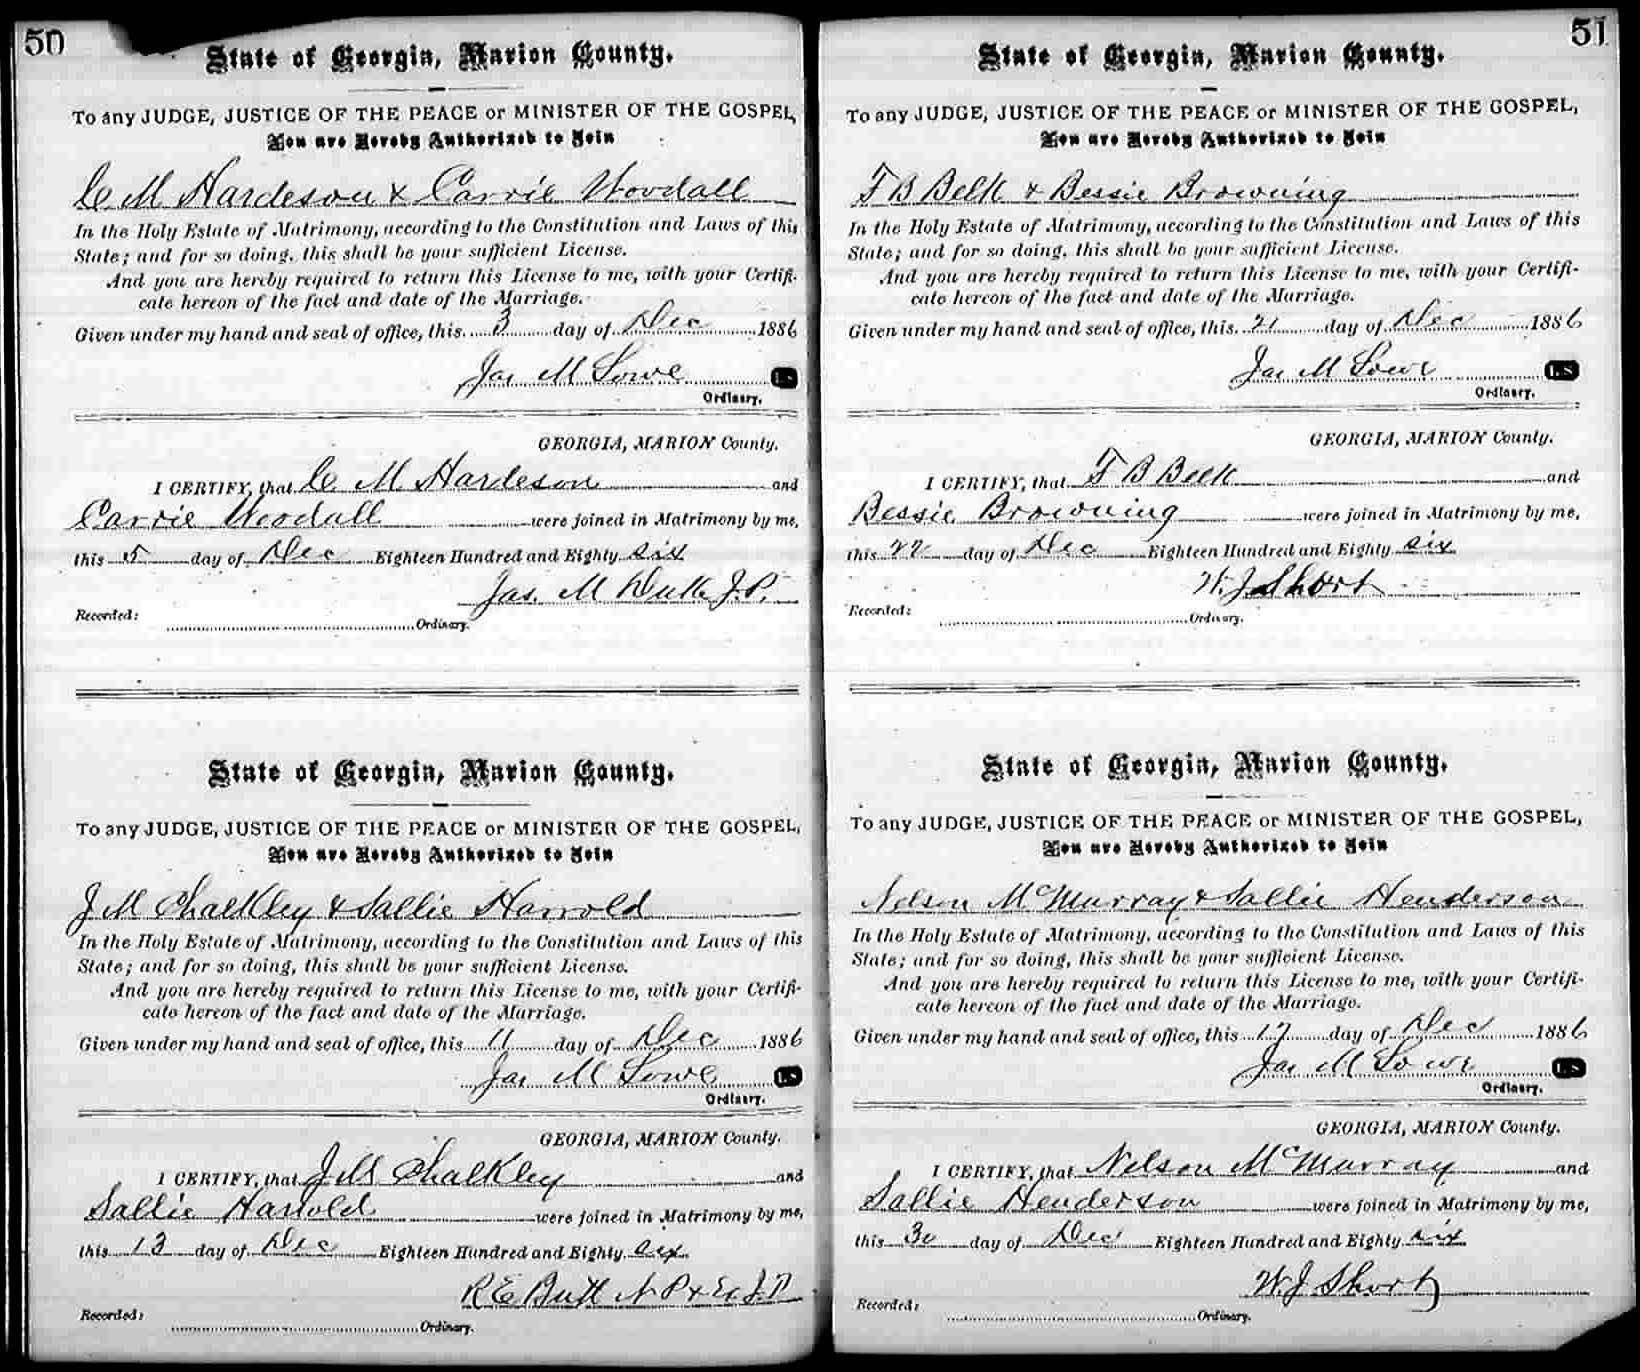 50
State of Georgia, Marion County.
To any JUDGE, JUSTICE OF THE PEACE or MINISTER OF THE GOSPEL,
You are Hereby Authorized to Join
C M Hardeson & Carrie Woodall
In the Holy Estate of Matrimony, according to the Constitution and Laws of this
State; and for so doing, this shall be your sufficient License.
And you are hereby required to return this License to me, with your Certifi-
cate hereon of the fact and date of the Marriage.
Given under my hand and seal of office, this 3 day of Dec 1886
Jas M Lowe L S
Ordinary.
GEORGIA, MARION County.
I CERTIFY, that C M Hardeson and
Carrie Woodall were joined in Matrimony by me,
this 5 day of Dec Eighteen Hundred and Eighty six
Jas. M Duke J.P.
Recorded:
Ordinary.
State of Georgia, Marion County.
To any JUDGE, JUSTICE OF THE PEACE or MINISTER OF THE GOSPEL,
You are Hereby Authorized to Join
J M Chalkley & Sallie Harrold
In the Holy Estate of Matrimony, according to the Constitution and Laws of this
State; and for so doing, this shall be your sufficient License.
And you are hereby required to return this License to me, with your Certifi-
cate hereon of the fact and date of the Marriage.
Given under my hand and seal of office, this 11 day of Dec 1886
Jas M Lowe L S
Ordinary.
GEORGIA, MARION County.
I CERTIFY, that J M Chalkley and
Sallie Harrold were joined in Matrimony by me,
this 13 day of Dec Eighteen Hundred and Eighty six
R E Butt N P & Ex J.P
Recorded:
Ordinary.
51
State of Georgia, Marion County.
To any JUDGE, JUSTICE OF THE PEACE or MINISTER OF THE GOSPEL,
You are Hereby Authorized to Join
F B Belk & Bessie Browning
In the Holy Estate of Matrimony, according to the Constitution and Laws of this
State; and for so doing, this shall be your sufficient License.
And you are hereby required to return this License to me, with your Certifi-
cate hereon of the fact and date of the Marriage.
Given under my hand and seal of office, this 21 day of Dec 1886
Jas M Lowe L S
Ordinary.
GEORGIA, MARION County.
I CERTIFY, that F B Belk and
Bessie Browning were joined in Matrimony by me,
this 22 day of Dec Eighteen Hundred and Eighty six
W. J Short
Recorded:
Ordinary.
State of Georgia, Marion County.
To any JUDGE, JUSTICE OF THE PEACE or MINISTER OF THE GOSPEL,
You are Hereby Authorized to Join
Nelson McMurray & Sallie Henderson
In the Holy Estate of Matrimony, according to the Constitution and Laws of this
State; and for so doing, this shall be your sufficient License.
And you are hereby required to return this License to me, with your Certifi-
cate hereon of the fact and date of the Marriage.
Given under my hand and seal of office, this 17 day of Dec 1886
Jas M Lowe L S
Ordinary.
GEORGIA, MARION County.
I CERTIFY, that Nelson McMurray and
Sallie Henderson were joined in Matrimony by me,
this 30 day of Dec Eighteen Hundred and Eighty six
W. J Short
Recorded:
Ordinary.